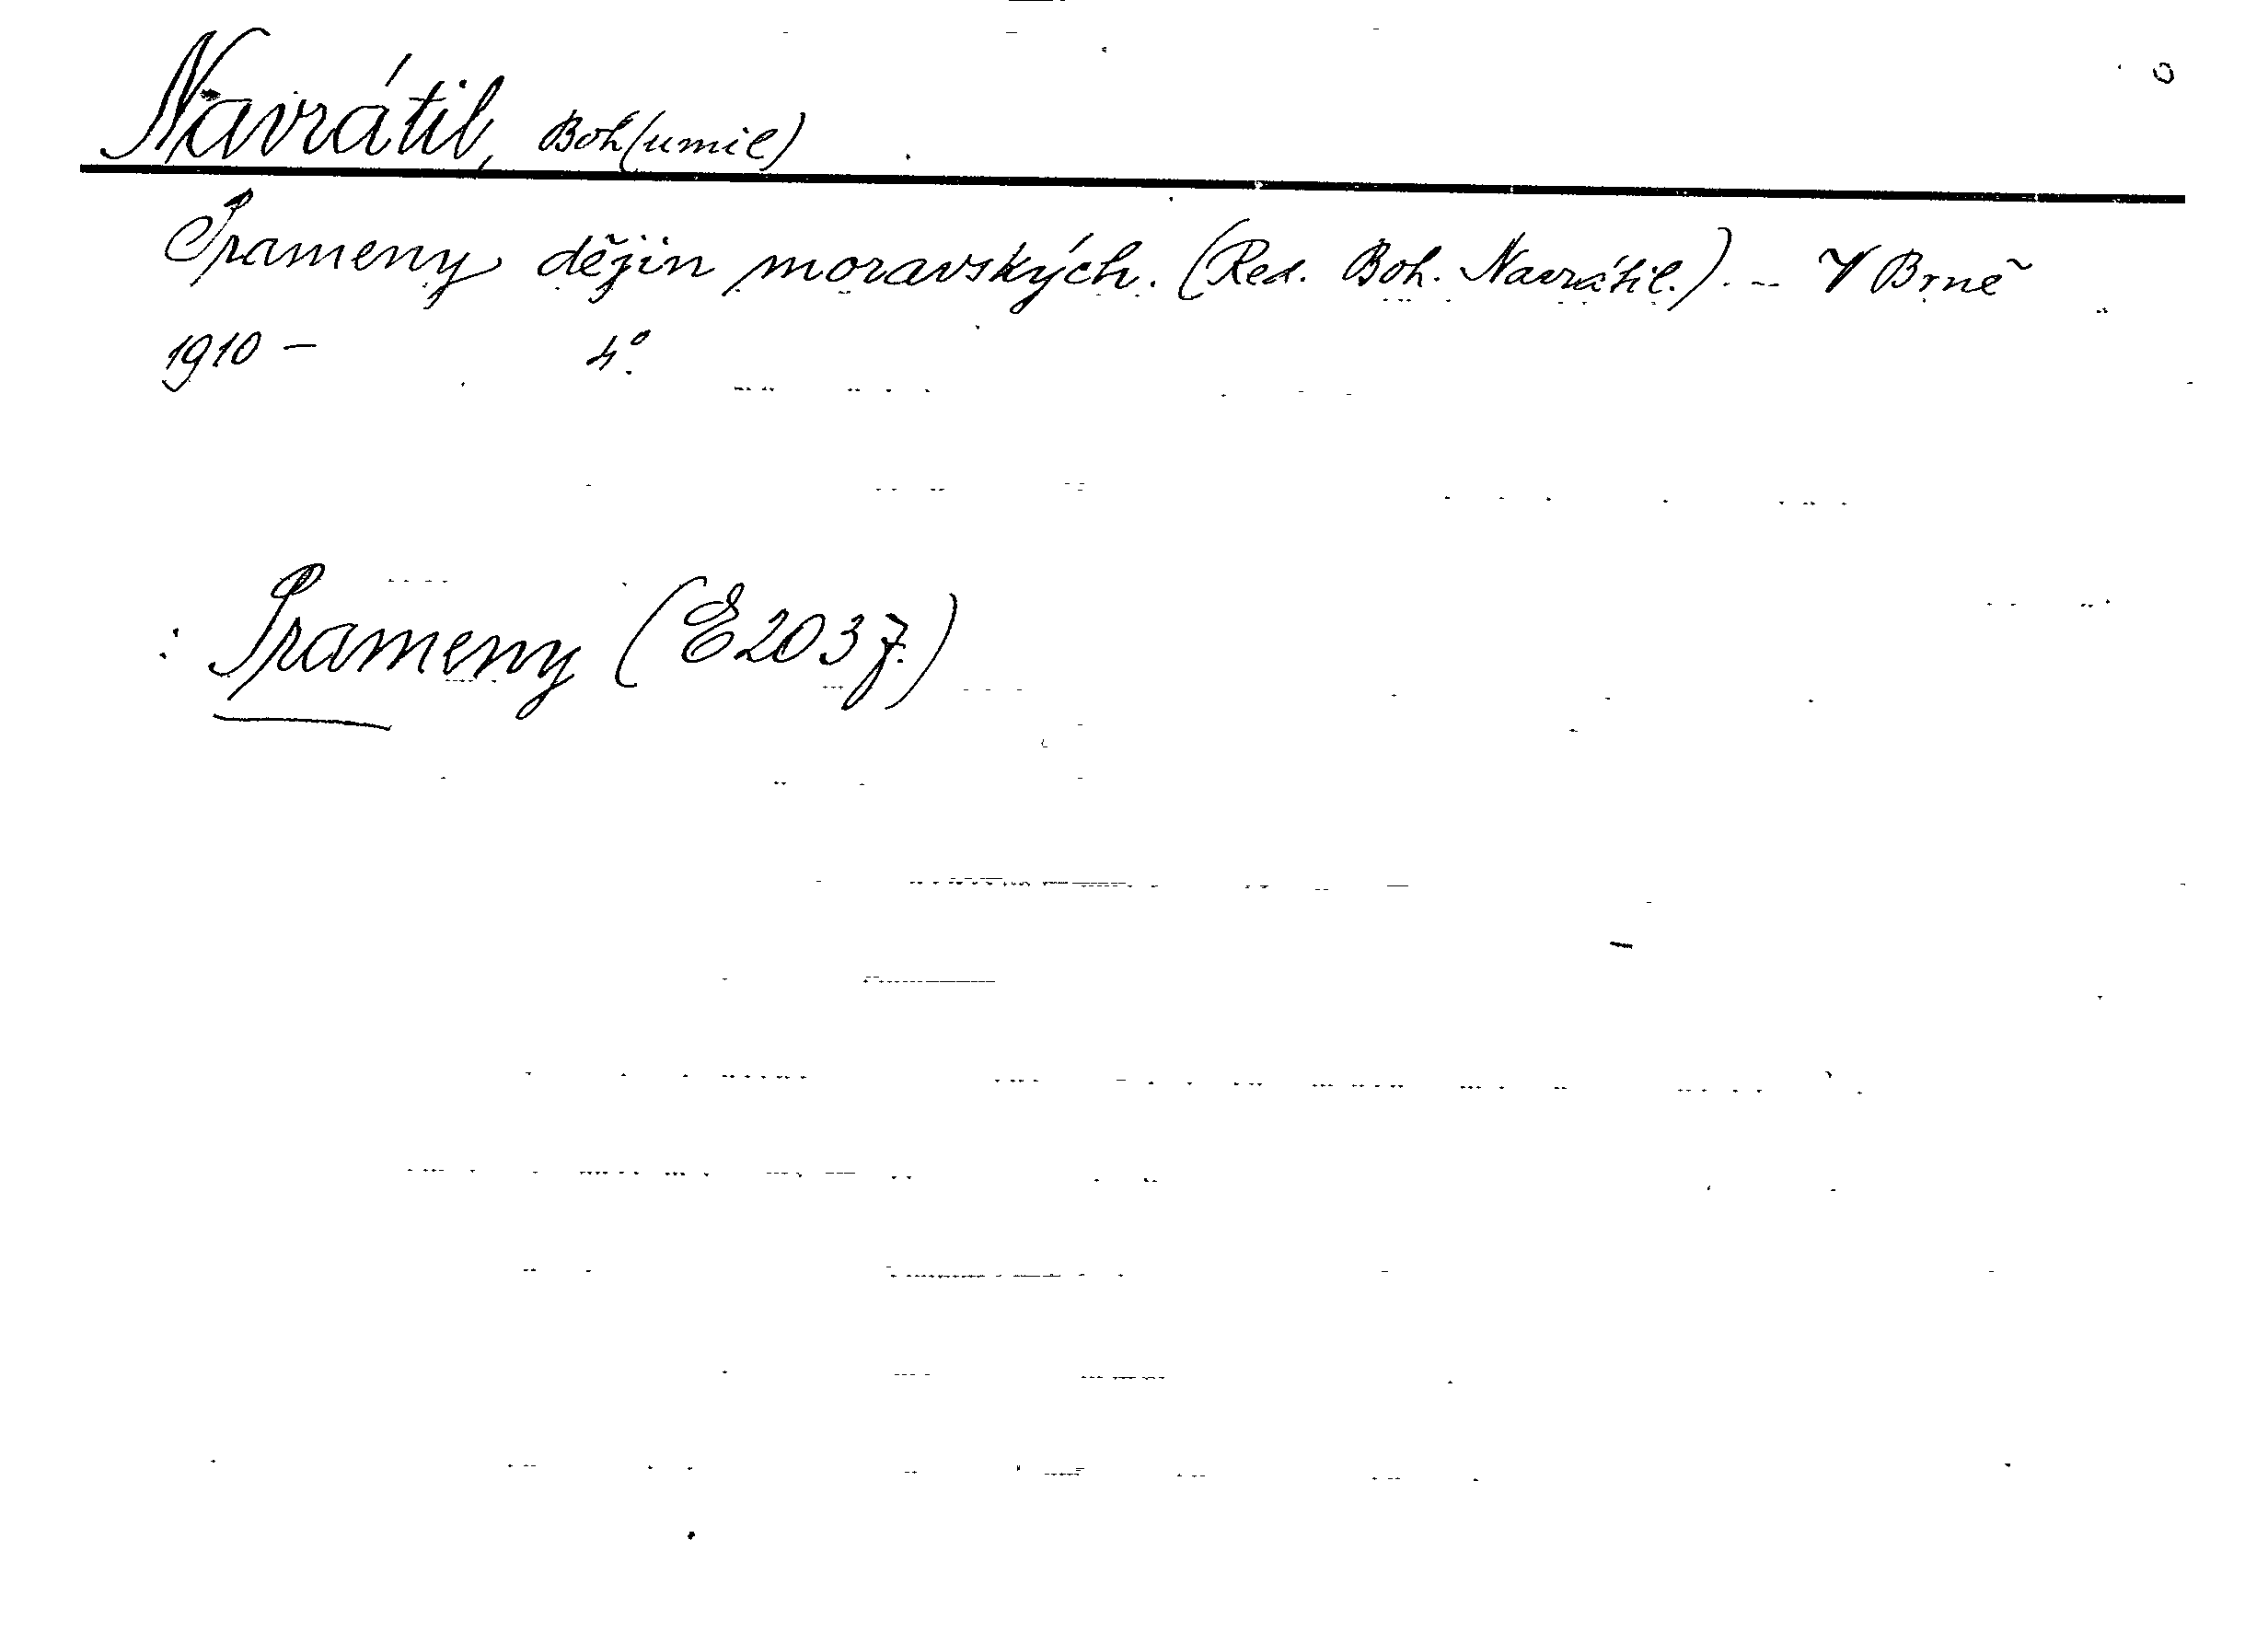 Navrátil, Boh(umil)
Prameny dějin moravských. (Red. Boh. Navrátil.). – V Brně
1910 – 4°.
: Prameny (E2037.)